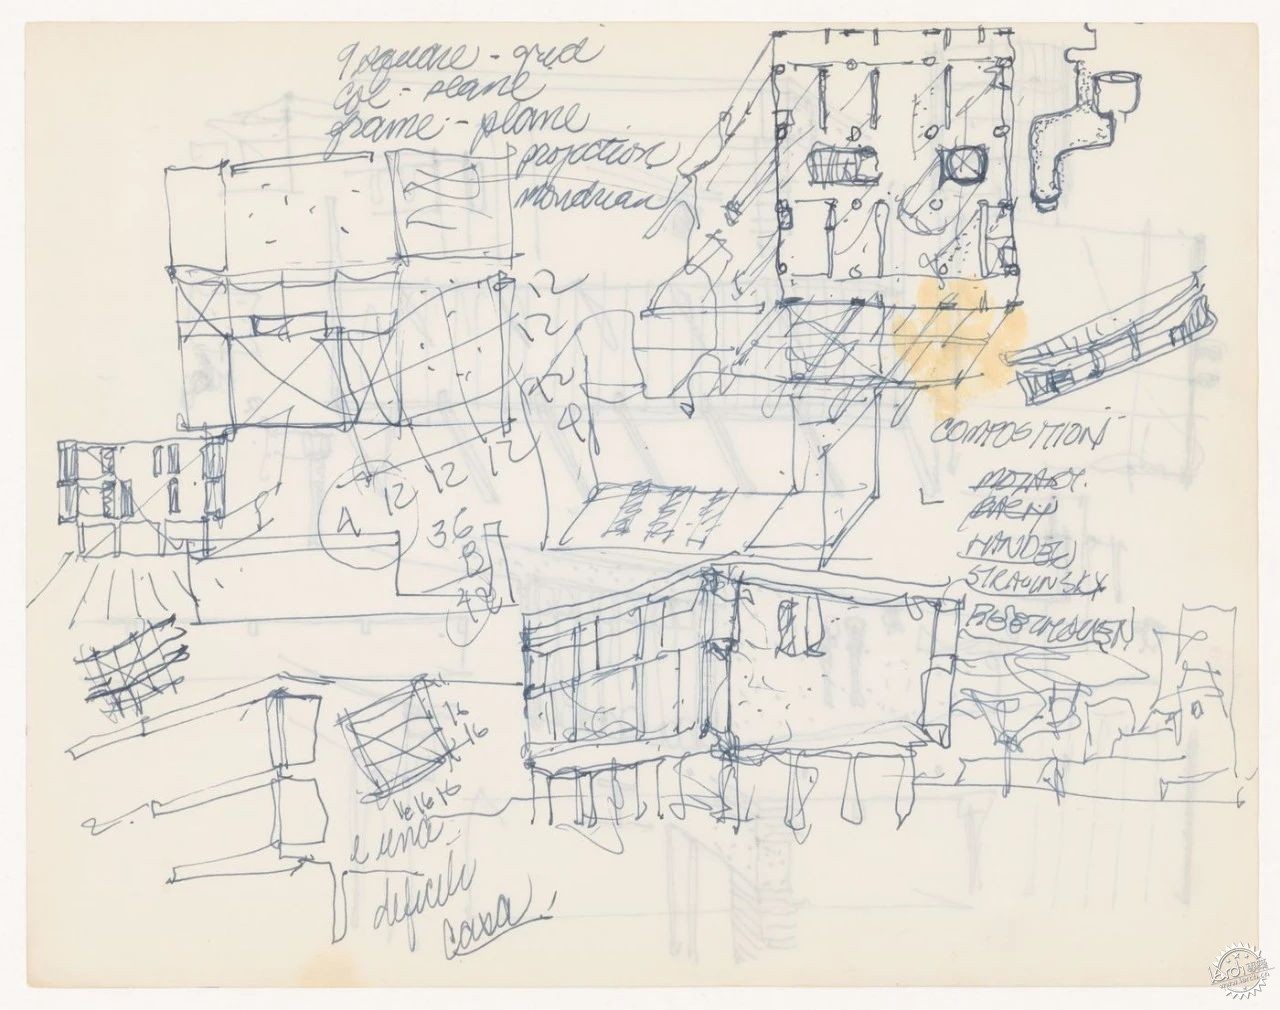 9 square - grid
col - plane
frame - plane
projection
mondrian
12
12
12
12
12
12
A
36
B
48
COMPOSITION
MOZART
BACH
HANDEL
STRAVINSKY
BEETHOVEN
16
16
16 16 16
è una
deficile
casa!